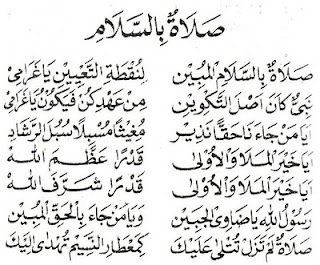 صَلَاةٌ بِالسَّلَامِ
صَلَاةٌ بِالسَّلَامِ الْمُبِيْنِ لِنُقْطَةِ التَّعْيِيْنِ يَاغَرَامِيْ
نَبِيٌّ كَانَ اَصْلَ التَّكْوِيْنِ مِنْ عَهْدِ كُنْ فَيَكُوْنُ يَاغَرَامِيْ
اَيَا مَنْ جَاءَ نَا حَقًّا نَذِيْرِ مُغِيْثًا مُسْبِلًا سُبُلَ الرَّشَادِ
اَيَا خَيْرَ الْمَلَا وَالْاُوْلَى قَدْرًا عَظَّمَ اللهُ
اَيَا خَيْرَ الْمَلَا وَالْاُوْلَى قَدْرًا شَرَّفَ اللهُ
رَسُوْلُ اللهِ يَاضَاوِى الْجَبِيْنِ وَيَامَنْ جَاءَ بِالْحَقِّ الْمُبِيْنِ
صَلَاةٌ لَمْ تَزَلْ تُتْلَى عَلَيْكَ كَمِعْطَارِ النَّسِيْمِ تُهْدَى اِلَيْكَ